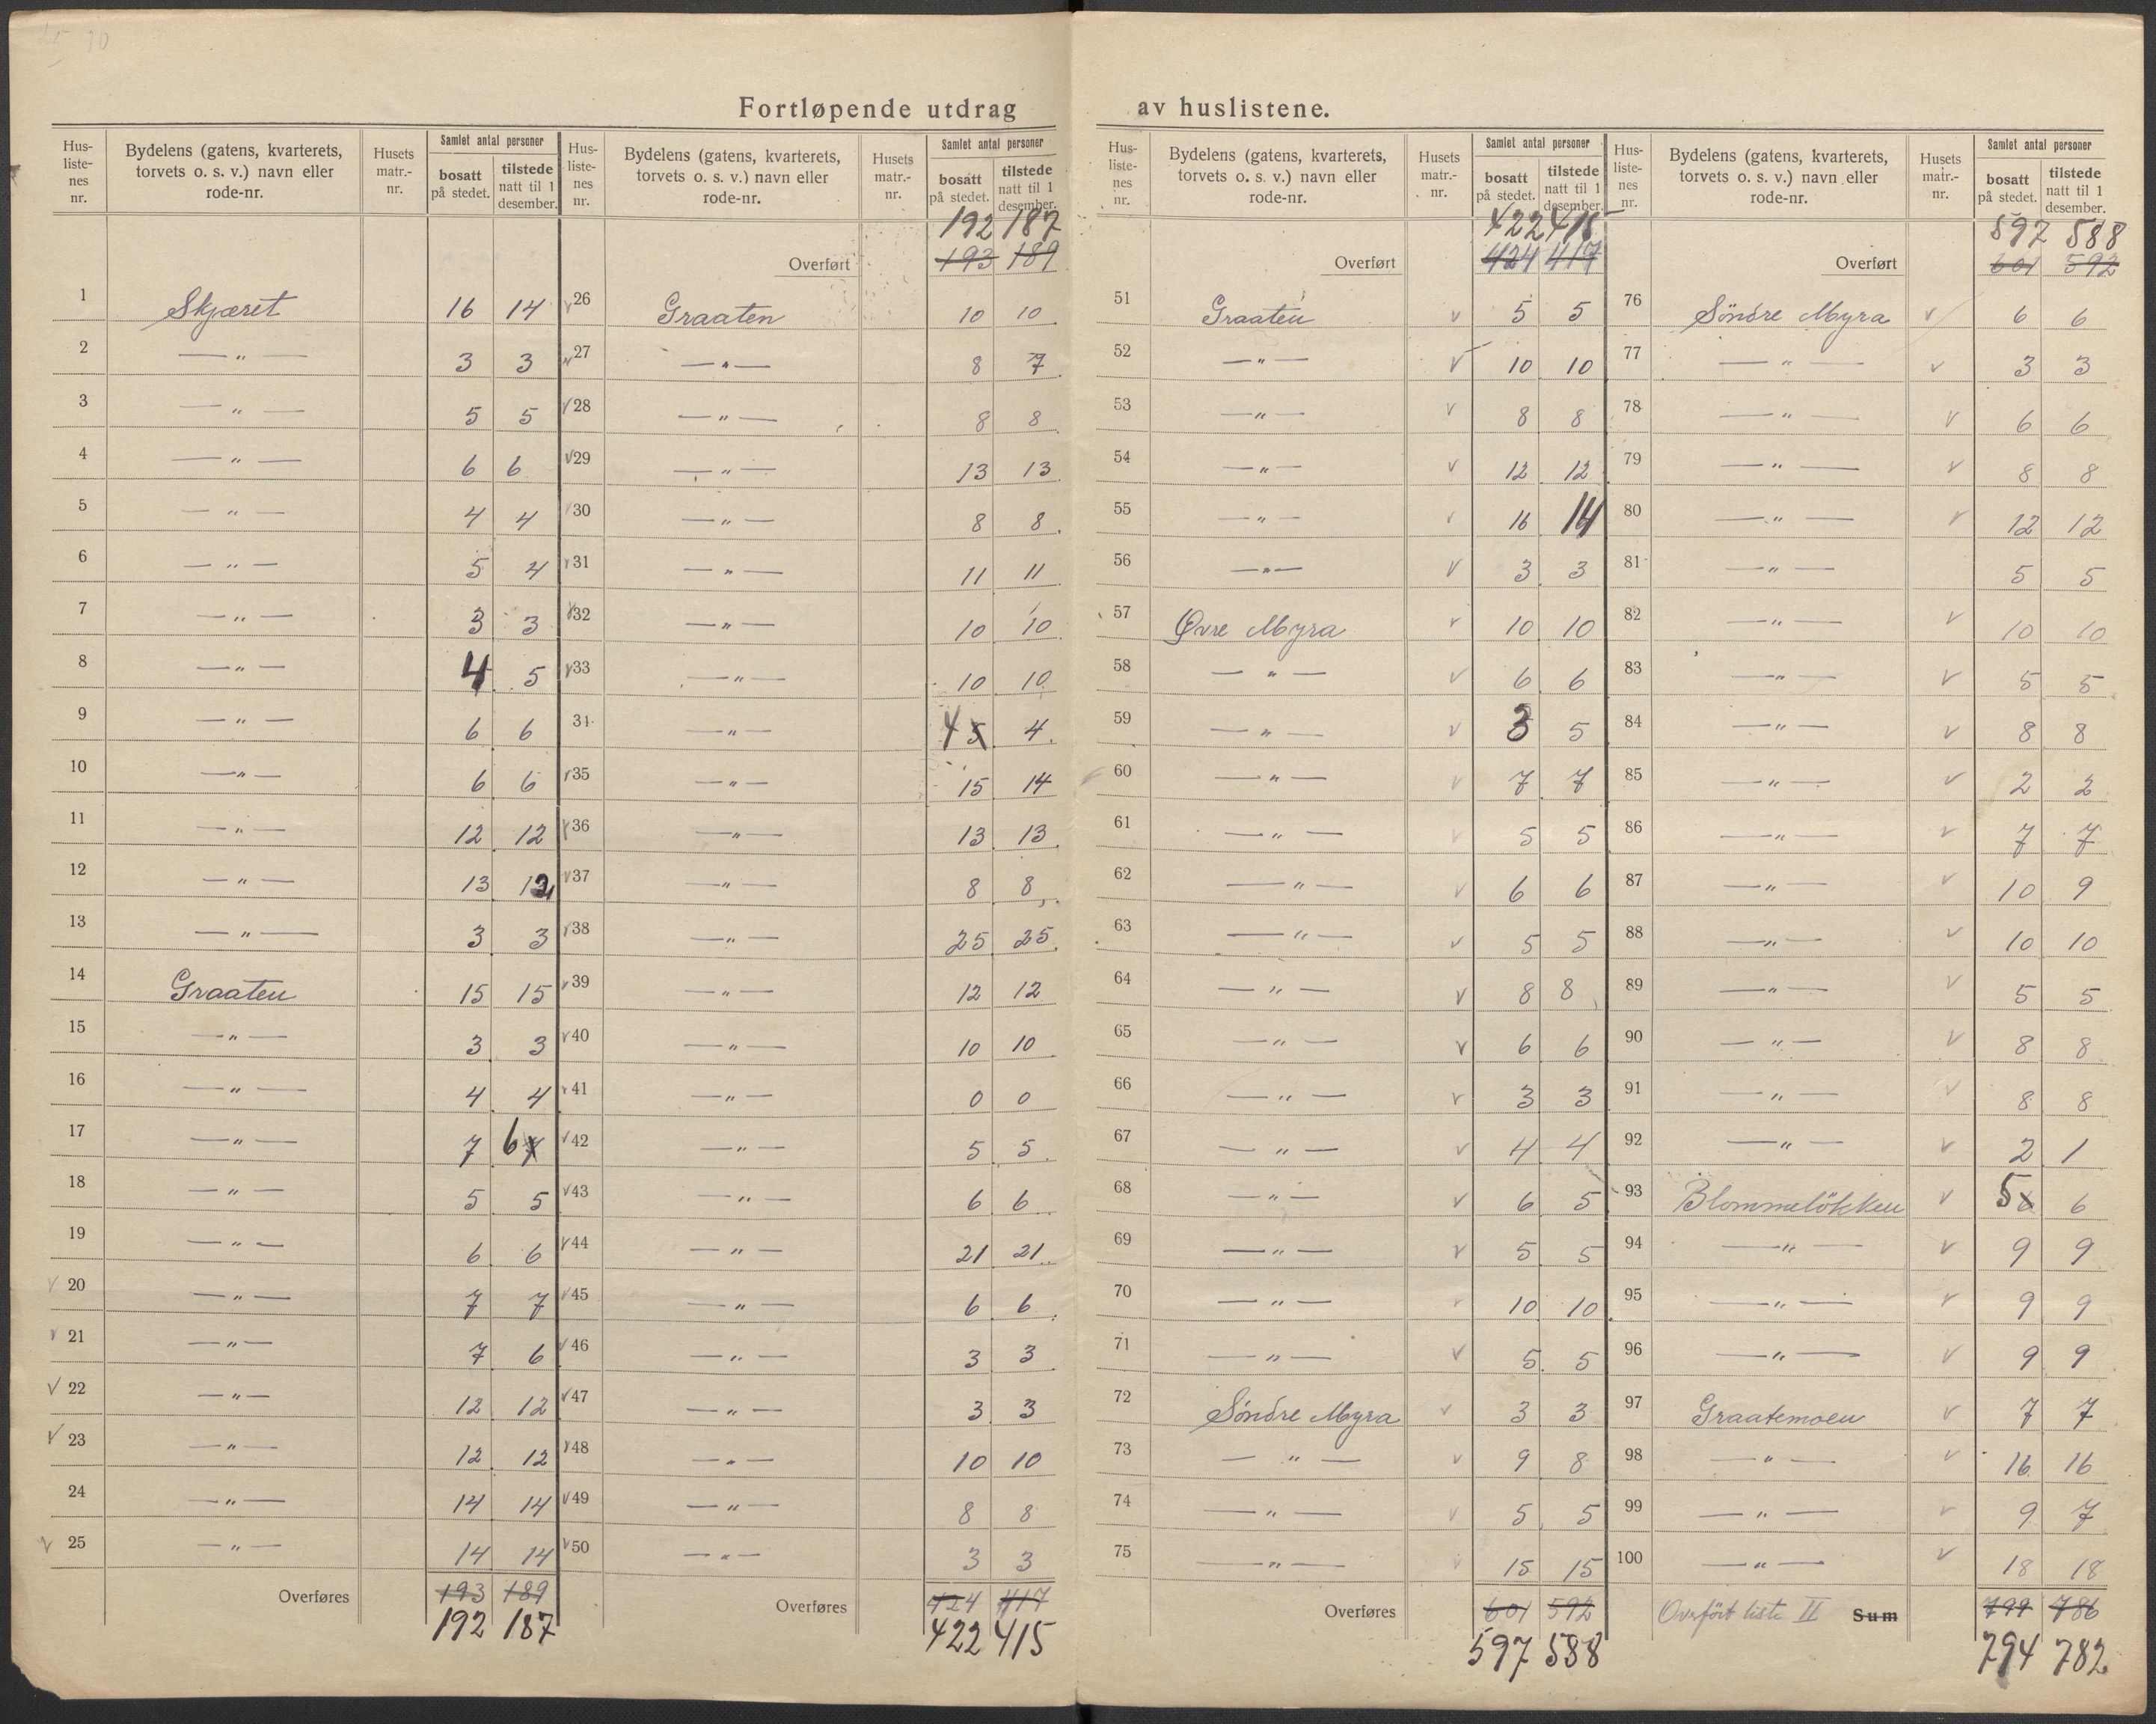 Fortløpende utdrag av huslistene.
Hus-listenes nr. | Bydelens (gatens, kvarterets, torvets o. s. v.) navn eller rode-nr. | Husets matr.-nr. | Samlet antal personer | bosatt på stedet. | tilstede natt til 1 desember.
1 Skjæret 16 14
2 —„— 3 3
3 —„— 5 5
4 —„— 6 6
5 —„— 4 4
6 —„— 5 4
7 —„— 3 3
8 —„— 4 5
9 —„— 6 6
10 —„— 6 6
11 —„— 12 12
12 —„— 13 12
13 —„— 3 3
14 Graaten 15 15
15 —„— 3 3
16 —„— 4 4
17 —„— 7 6 7
18 —„— 5 5
19 —„— 6 6
v 20 —„— 7 7
v 21 —„— 7 6
v 22 —„— 12 12
v 23 —„— 12 12
24 —„— 14 14
v 25 —„— 14 14
Overføres 193 189
192 187
Hus-listenes nr. | Bydelens (gatens, kvarterets, torvets o. s. v.) navn eller rode-nr. | Husets matr.-nr. | Samlet antal personer | bosatt på stedet. | tilstede natt til 1 desember.
192 187
Overført 193 189
v 26 Graaten 10 10
v 27 —„— 8 7
v 28 —„— 8 8
v 29 —„— 13 13
v 30 —„— 8 8
v 31 —„— 11 11
v 32 —„— 10 10
v 33 —„— 10 10
34 —„— 4 5 4
v 35 —„— 15 14
v 36 —„— 13 13
v 37 —„— 8 8
v 38 —„— 25 25
v 39 —„— 12 12
v 40 —„— 10 10
v 41 —„— 0 0
v 42 —„— 5 5
v 43 —„— 6 6
v 44 —„— 21 21
v 45 —„— 6 6
v 46 —„— 3 3
v 47 —„— 3 3
v 48 —„— 10 10
v 49 —„— 8 8
v 50 —„— 3 3
Overføres 424 417
422 415
Hus-listenes nr. | Bydelens (gatens, kvarterets, torvets o. s. v.) navn eller rode-nr. | Husets matr.-nr. | Samlet antal personer | bosatt på stedet. | tilstede natt til 1 desember.
422 415
Overført 424 417
51 Graaten v 5 5
52 —„— v 10 10
53 —„— v 8 8
54 —„— v 12 12
55 —„— v 16 14
56 —„— v 3 3
57 Øvre Myra v 10 10
58 —„— v 6 6
59 —„— v 3 5
60 —„— v 7 7
61 —„— v 5 5
62 —„— v 6 6
63 —„— v 5 5
64 —„— v 8 8
65 —„— v 6 6
66 —„— v 3 3
67 —„— v 4 4
68 —„— v 6 5
69 —„— v 5 5
70 —„— v 10 10
71 —„— v 5 5
72 Søndre Myra v 3 3
73 —„— v 9 8
74 —„— v 5 5
75 —„— v 15 15
Overføres 601 592
597 588
Hus-listenes nr. | Bydelens (gatens, kvarterets, torvets o. s. v.) navn eller rode-nr. | Husets matr.-nr. | Samlet antal personer | bosatt på stedet. | tilstede natt til 1 desember.
597 588
Overført 601 592
76 Söndre Myra v 6 6
77 —„— v 3 3
78 —„— v 6 6
79 —„— v 8 8
80 —„— v 12 12
81 —„— 5 5
82 —„— v 10 10
83 —„— v 5 5
84 —„— v 8 8
85 —„— v 2 2
86 —„— v 7 7
87 —„— v 10 9
88 —„— v 10 10
89 —„— v 5 5
90 —„— v 8 8
91 —„— v 8 8
92 —„— v 2 1
93 Blommelökken v 5 6
94 —„— v 9 9
95 —„— v 9 9
96 —„— v 9 9
97 Graatemoen v 7 7
98 —„— v 16 16
99 —„— v 9 7
100 —„— v 18 18
Overfört liste II Sum 799 786
794 782